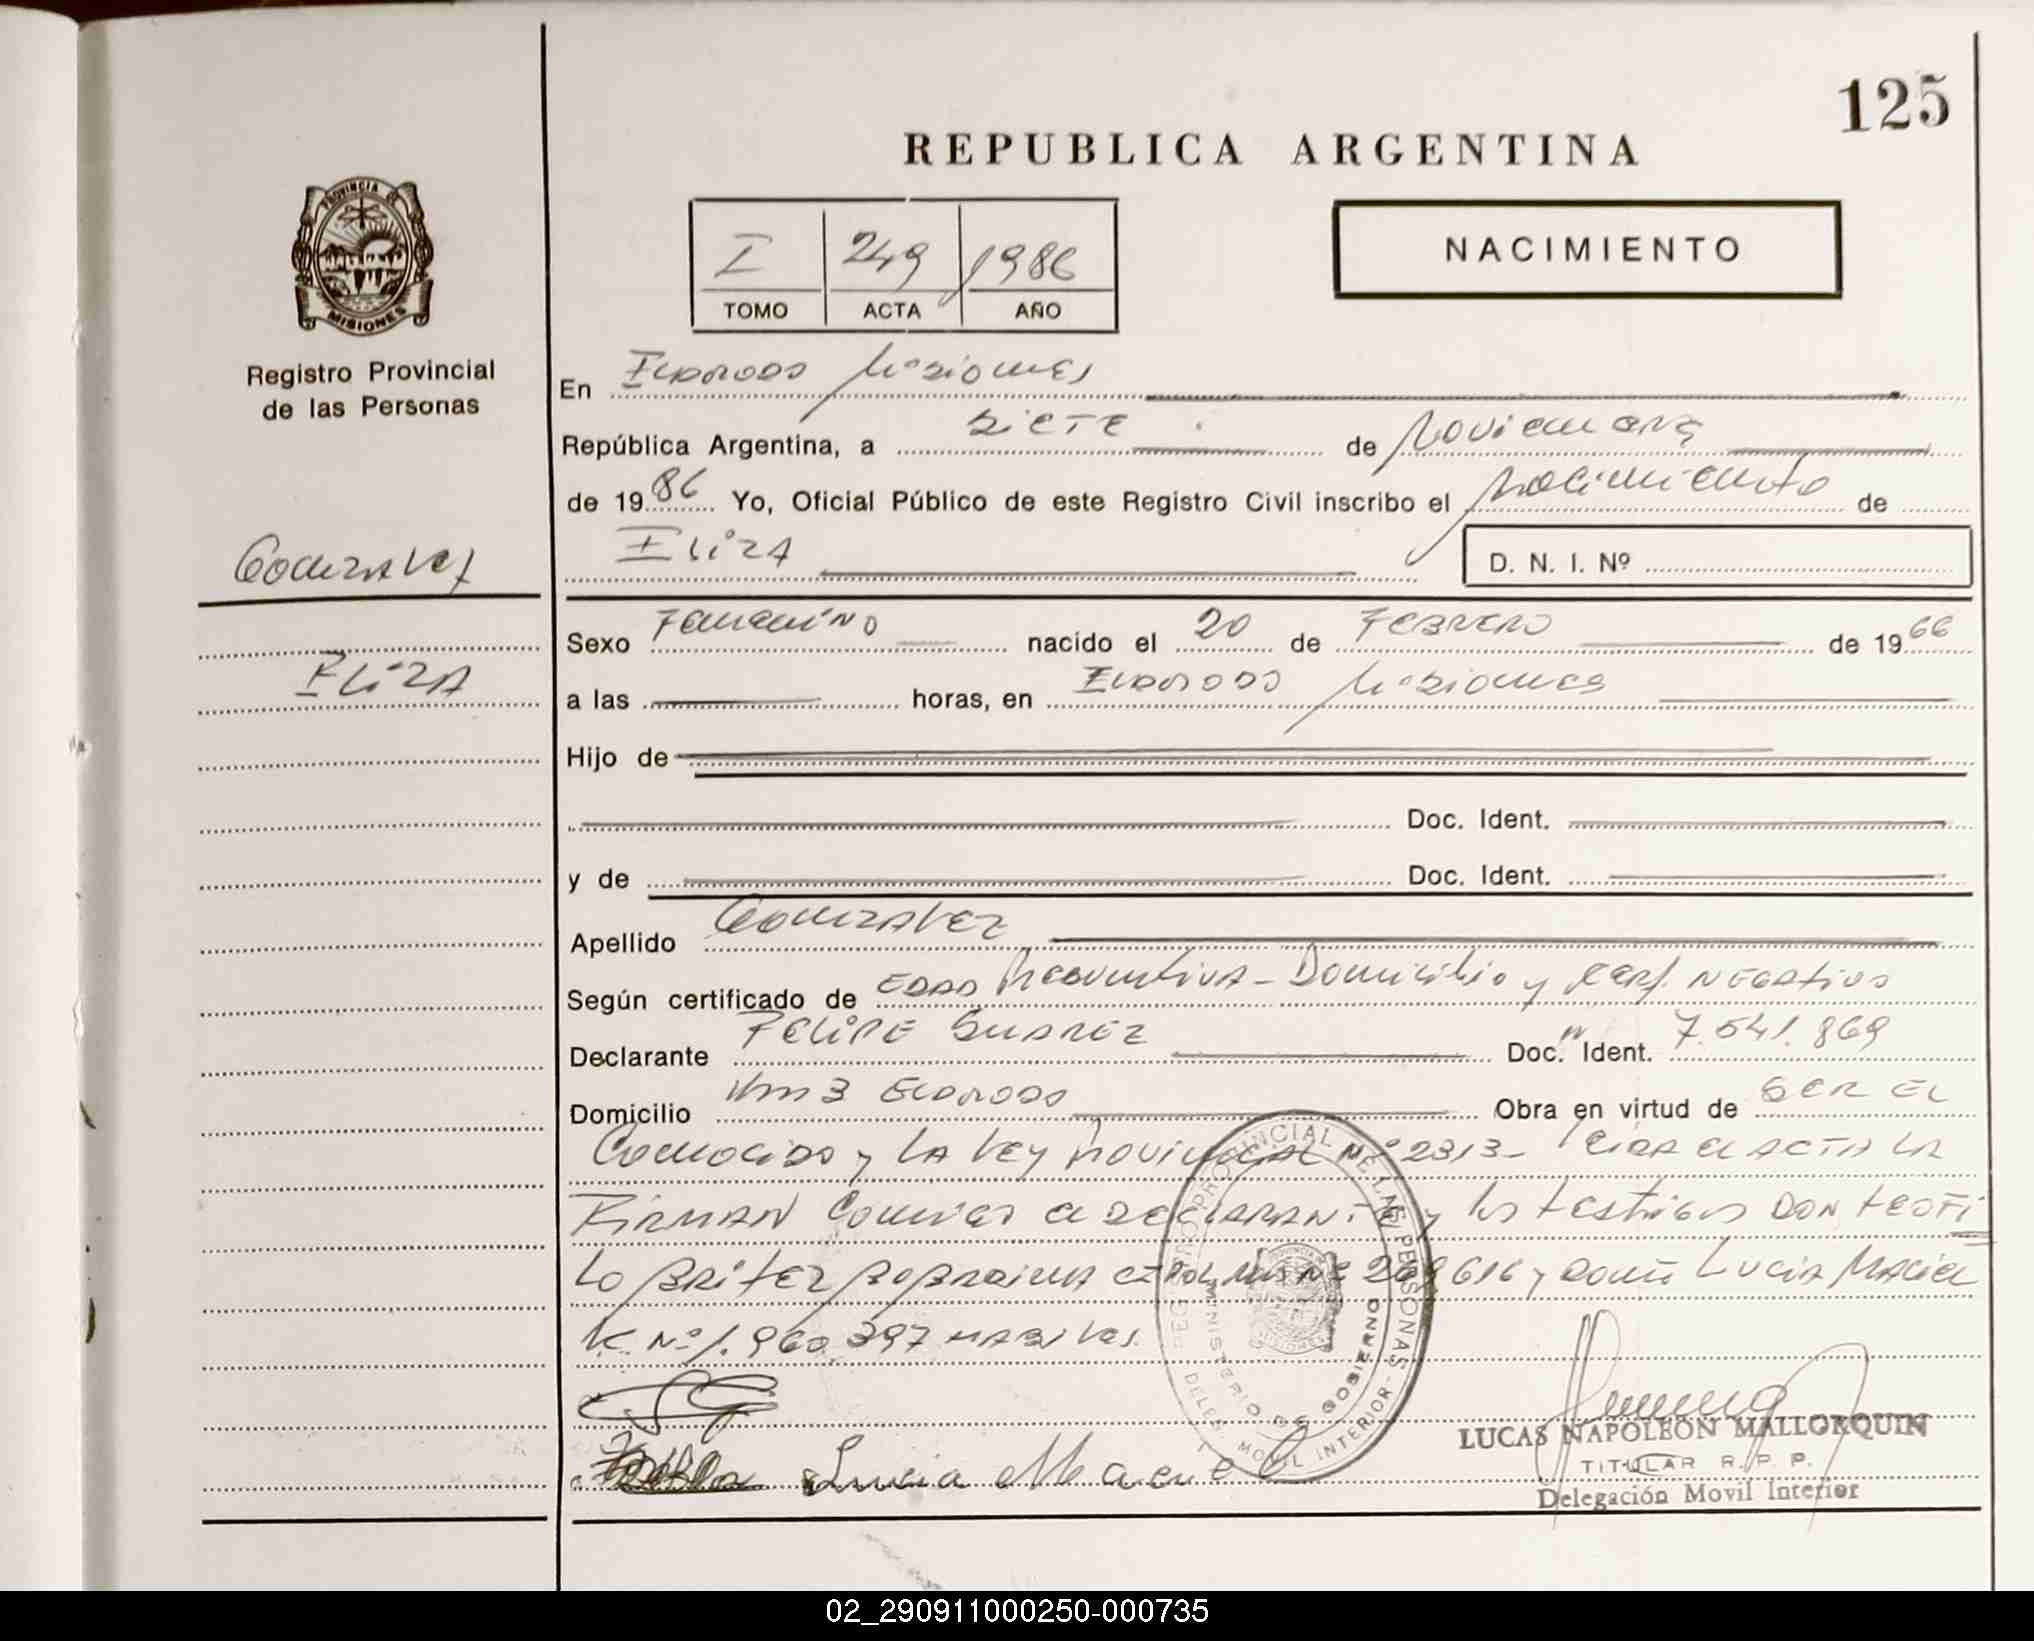 125
REPUBLICA ARGENTINA
PROVINCIA DE
MISIONES
Registro Provincial
de las Personas
I 249 1986
TOMO ACTA AÑO
NACIMIENTO
En Eldorado Misiones
República Argentina, a siete de Noviembre
de 1986 Yo, Oficial Público de este Registro Civil inscribo el Nacimiento de
Eliza D. N. I. Nº
Gonzalez
Eliza
Sexo Femenino nacido el 20 de Febrero de 1966
a las horas, en Eldorado Misiones
Hijo de
Doc. Ident.
y de Doc. Ident.
Apellido Gonzalez
Según certificado de EDAD Presuntiva - Domicilio y Cert. Negativo
Declarante Felipe Suarez Doc. Ident. Nº 7.541.869
Domicilio Km 3 Eldorado Obra en virtud de SER EL
Conocido y LA Ley Provincial Nº 2313- Leida el ACTA LA
FIRMAN Conmigo el DECLARANTE y los testigos DON TEOFI
Lo BRITEZ y DOÑA Lucia Maciel
Nº 1.960.397 HABILES.
Lucia Maciel
REGISTRO PROVINCIAL DE LAS PERSONAS
MINISTERIO DE GOBIERNO
DELEG. MOVIL INTERIOR
LUCAS NAPOLEON MALLORQUIN
TITULAR R. P. P.
Delegación Movil Interior
02_290911000250-000735